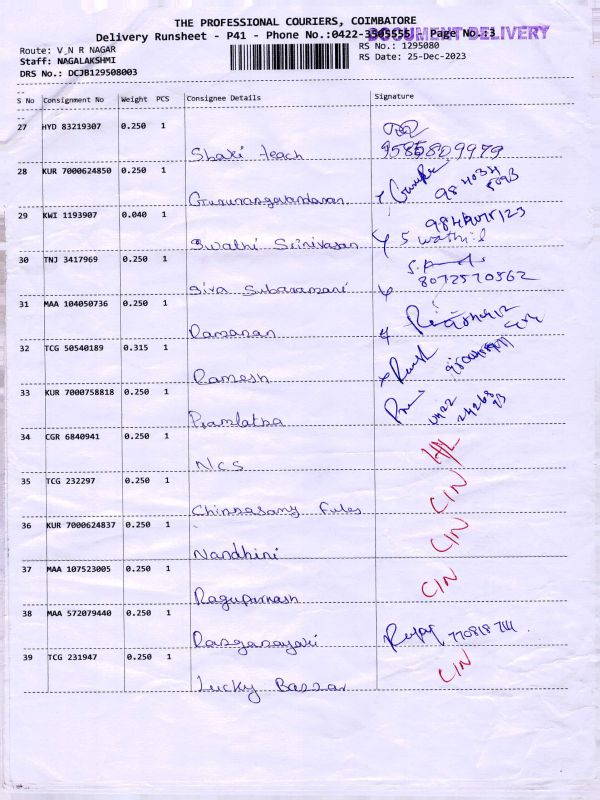 THE PROFESSIONAL COURIERS, COIMBATORE
DOCUMENT DELIVERY
Delivery Runsheet - P41 - Phone No.:0422-3505555 - Page No.:3
Route: V_N R NAGAR
RS No.: 1295080
Staff: NAGALAKSHMI
RS Date: 25-Dec-2023
DRS No.: DCJB129508003
S No Consignment No Weight PCS Consignee Details Signature
27 HYD 83219307 0.250 1
Shaxi teach 9585809979
28 KUR 7000624850 0.250 1
984034
5093
29 KWI 1193907 0.040 1
Swathi Srinivasan
30 TNJ 3417969 0.250 1
Siva Subaramani 8072570562
31 MAA 104050736 0.250 1
Ramanan
32 TCG 50540189 0.315 1
Ramesh
33 KUR 7000758818 0.250 1
Pramlatha 0422 24268 93
34 CGR 6840941 0.250 1
NCS
35 TCG 232297 0.250 1
Chinnasamy Fules CIN
36 KUR 7000624837 0.250 1
Nandhini CIN
37 MAA 107523005 0.250 1
Raguprakash CIN
38 MAA 572079440 0.250 1
Ranganayaki
39 TCG 231947 0.250 1
Lucky Bazzar CIN